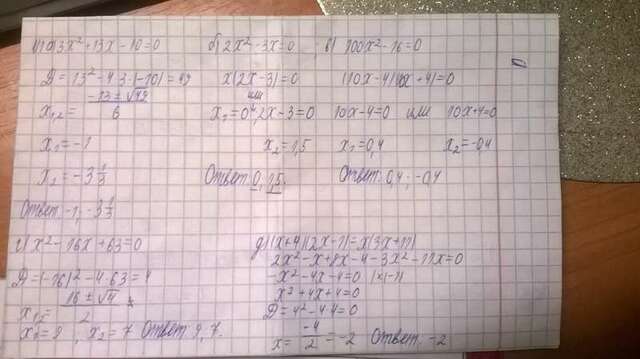 а) 3x²+13x-10=0
D=13²-4·3·(-10)=49
x₁,₂= (-13±√49)/6
x₁=-1
x₂=-3 1/3
Ответ: -1; -3 1/3
б) 2x²-3x=0
x(2x-3)=0
или
x₁=0 2x-3=0
x₂=1,5
Ответ: 0; 1,5.
в) 100x²-16=0
(10x-4)(10x+4)=0
10x-4=0 или 10x+4=0
x₁=0,4 x₂=-0,4
Ответ: 0,4; -0,4
г) x²-16x+63=0
D=(-16)²-4·63=4
x₁,₂= (16±√4)/2
x₁=9, x₂=7 Ответ: 9, 7.
д) (x+4)(2x-1)=x(3x+11)
2x²-x+8x-4-3x²-11x=0
-x²-4x-4=0 |×(-1)
x²+4x+4=0
D=4²-4·4=0
x= -4/2 =-2 Ответ: -2